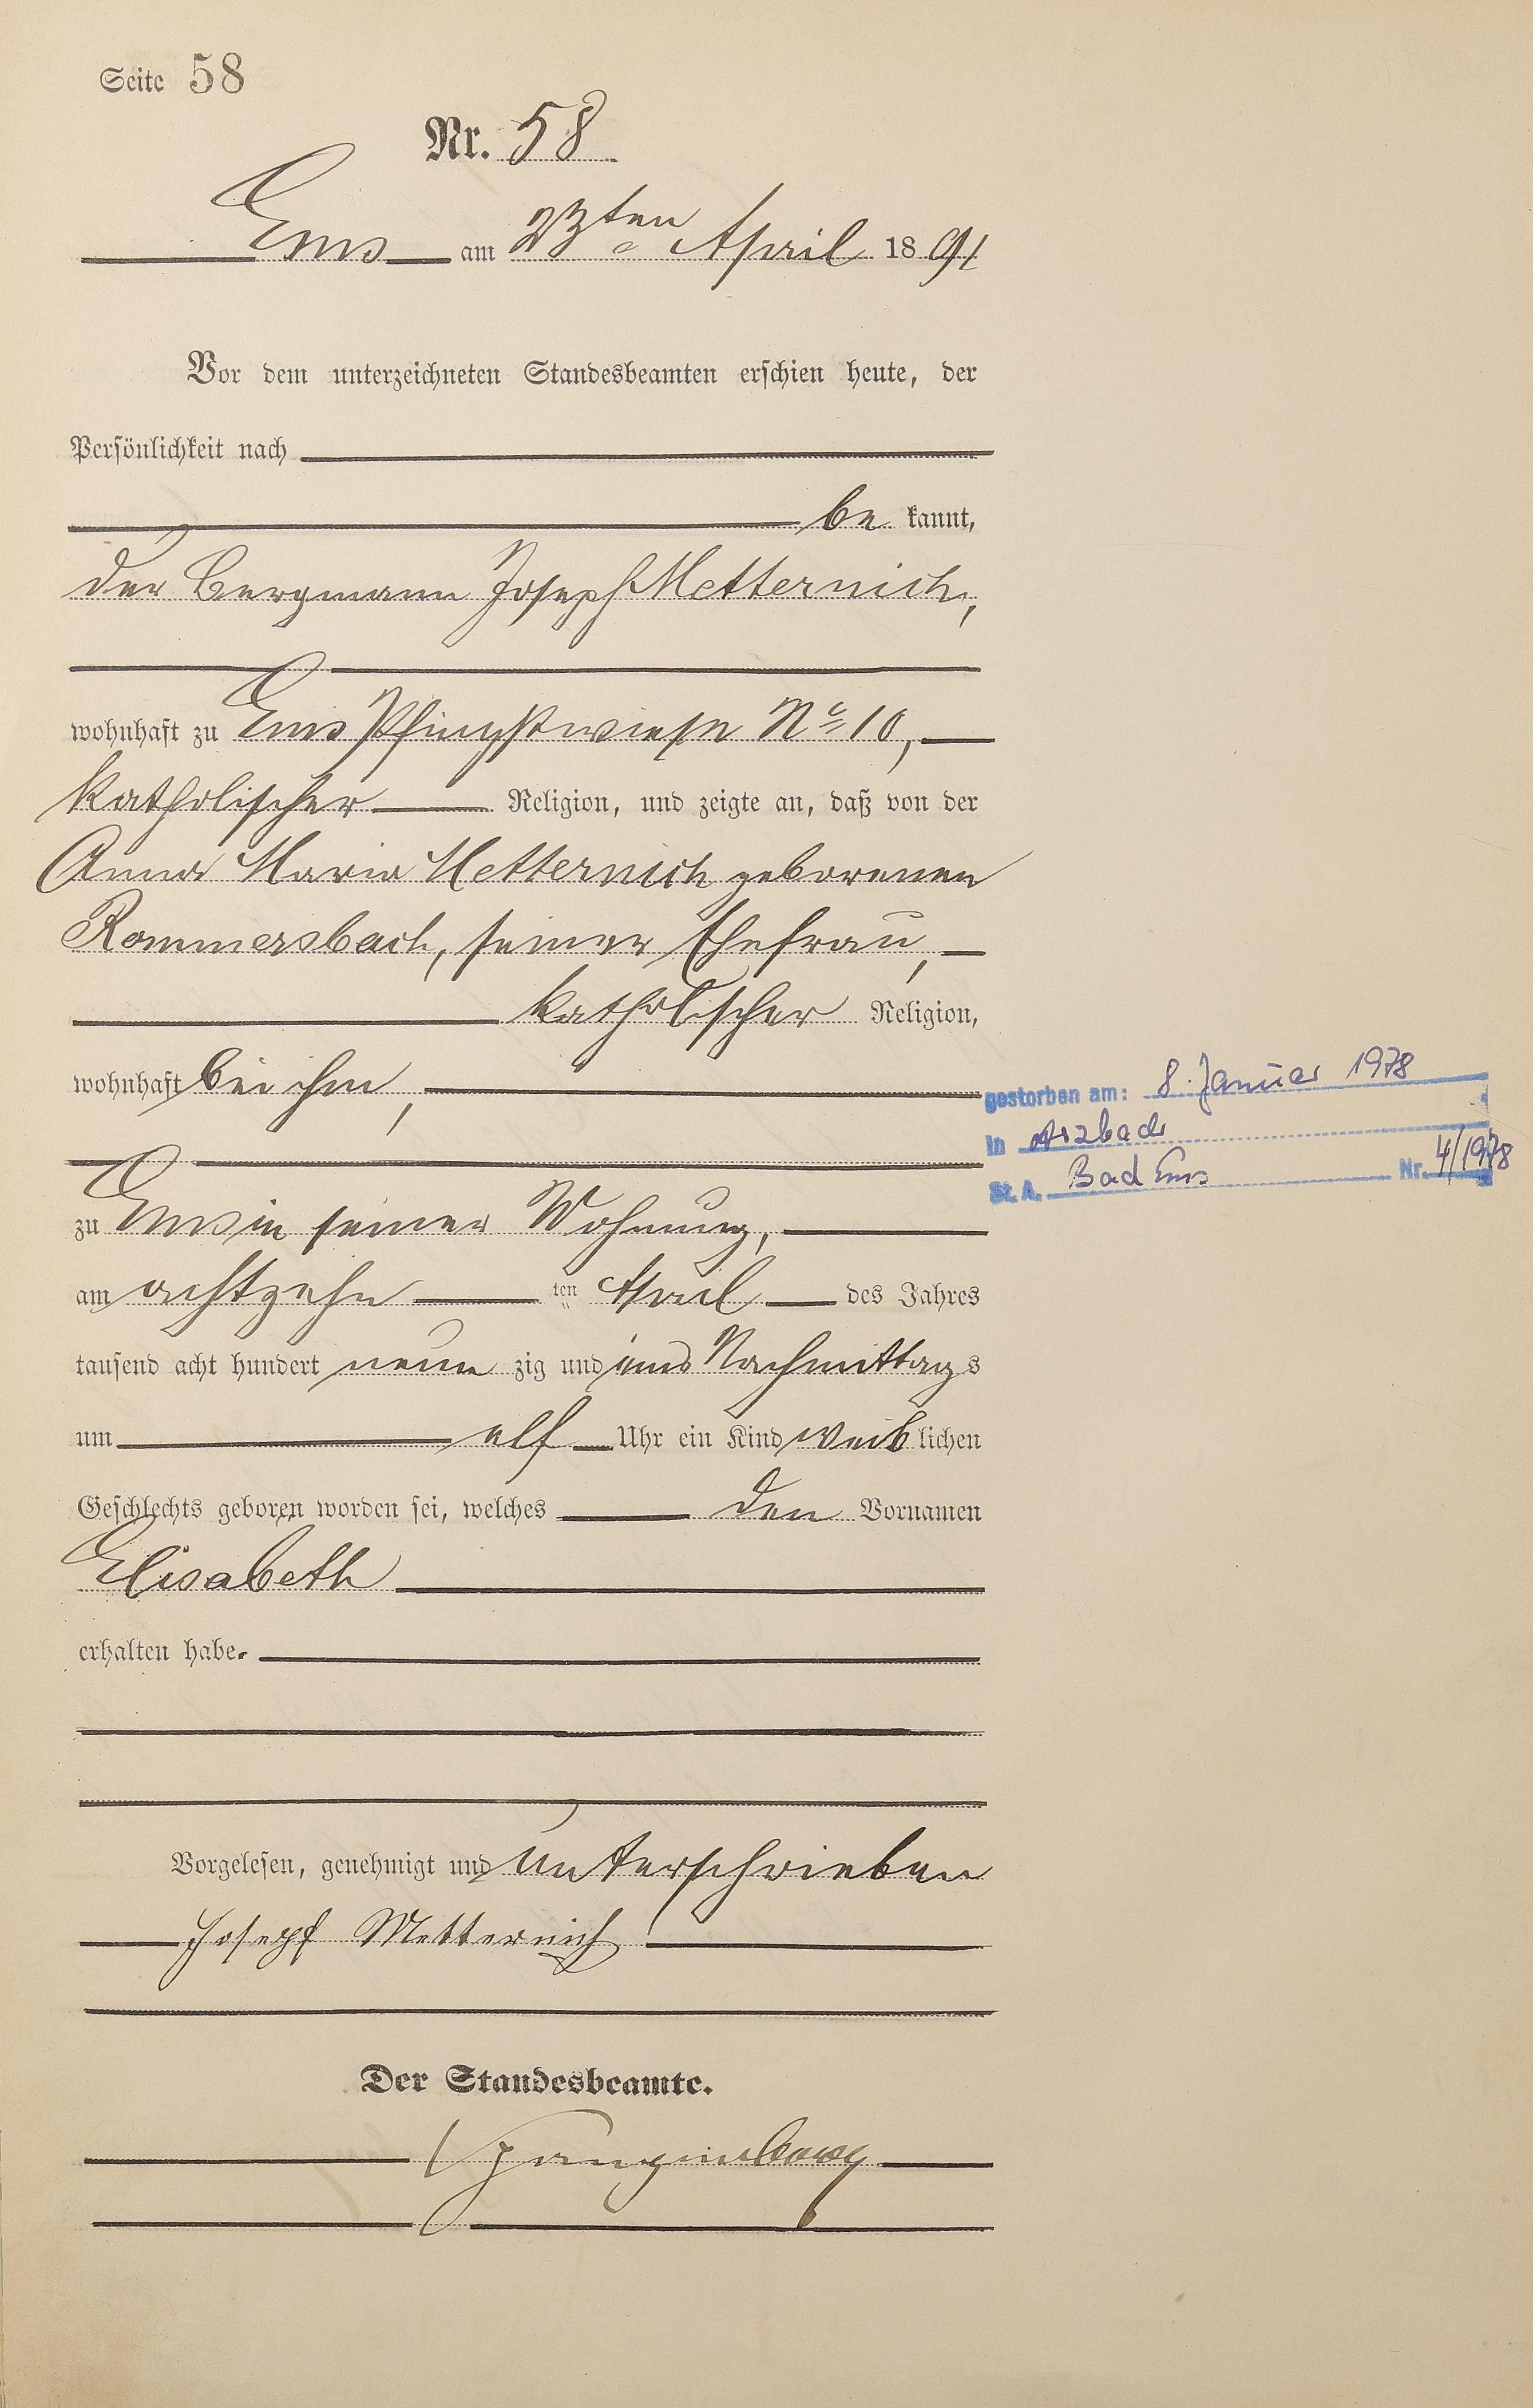 Seite 58
Nr. 58
Ems am 23ten April 1891
Vor dem unterzeichneten Standesbeamten erschien heute, der
Persönlichkeit nach
be kannt,
der Bergmann Joseph Metternich,
wohnhaft zu Ems Pfingstwiese No 10,
katholischer Religion, und zeigte an, daß von der
Anna Maria Metternich geborenen
Rommersbach, seiner Ehefrau,
katholischer Religion,
wohnhaft bei ihm,
gestorben am: 8. Januar 1978
in Arzbach
St. A. Bad Ems Nr. 4/1978
zu Ems in seiner Wohnung,
am achtzehn ten April des Jahres
tausend acht hundert neun zig und eins Nachmittags
um elf Uhr ein Kind weib lichen
Geschlechts geboren worden sei, welches den Vornamen
Elisabeth
erhalten habe.
Vorgelesen, genehmigt und unterschrieben
Joseph Metternich
Der Standesbeamte.